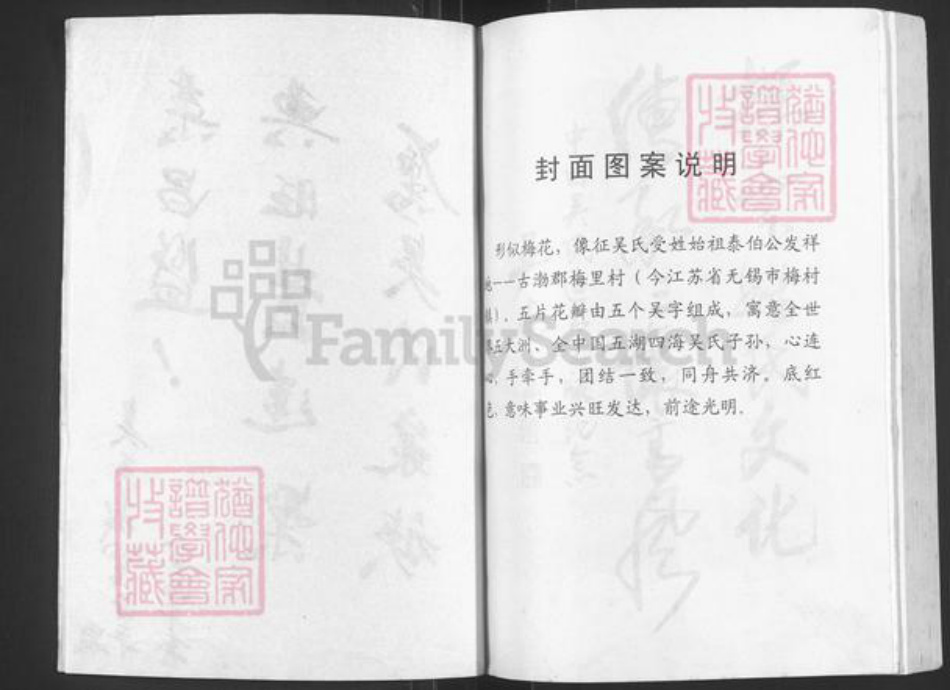 封面图案说明
形似梅花，像征吴氏受姓始祖泰伯公发祥
地——古渤郡梅里村（今江苏省无锡市梅村
镇）。五片花瓣由五个吴字组成，寓意全世
界五大洲、全中国五湖四海吴氏子孙，心连
心，手牵手，团结一致，同舟共济。底红
色，意味事业兴旺发达，前途光明。
FamilySearch
猶他家
譜學會
收藏
猶他家
譜學會
收藏